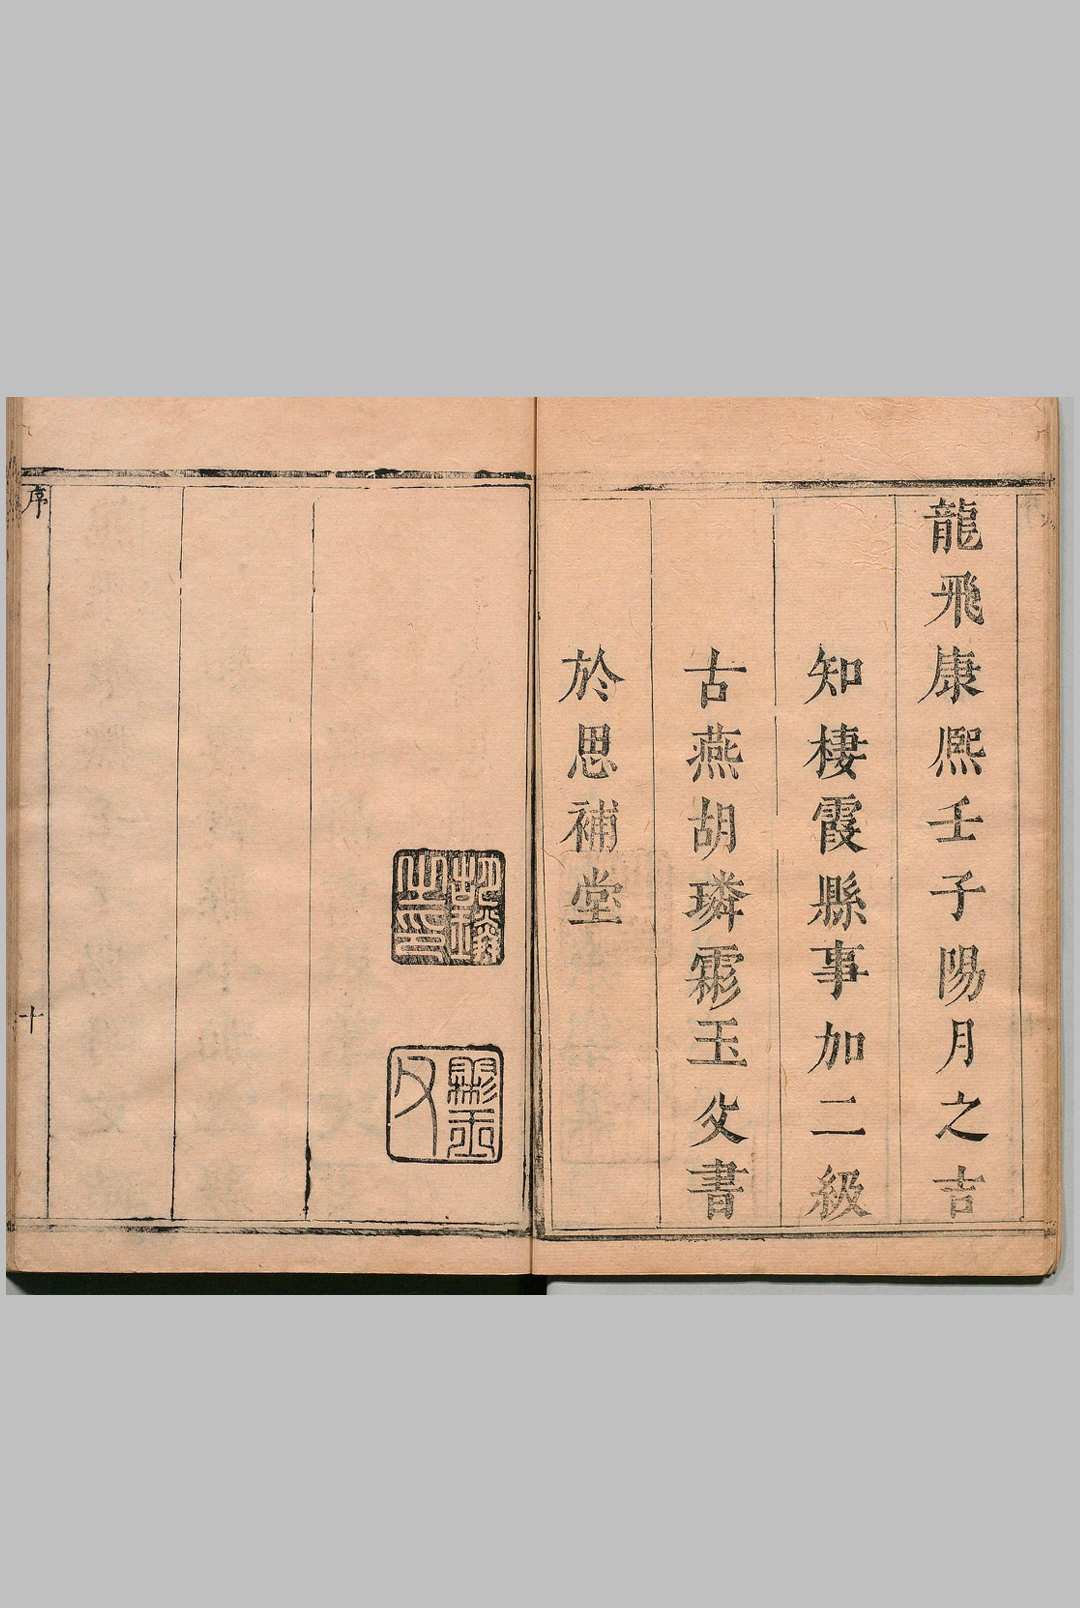 龍飛康熙壬子陽月之吉
知棲霞縣事加二級
古燕胡璘霦玉父書
於思補堂
胡璘之印
霦玉父
序
十